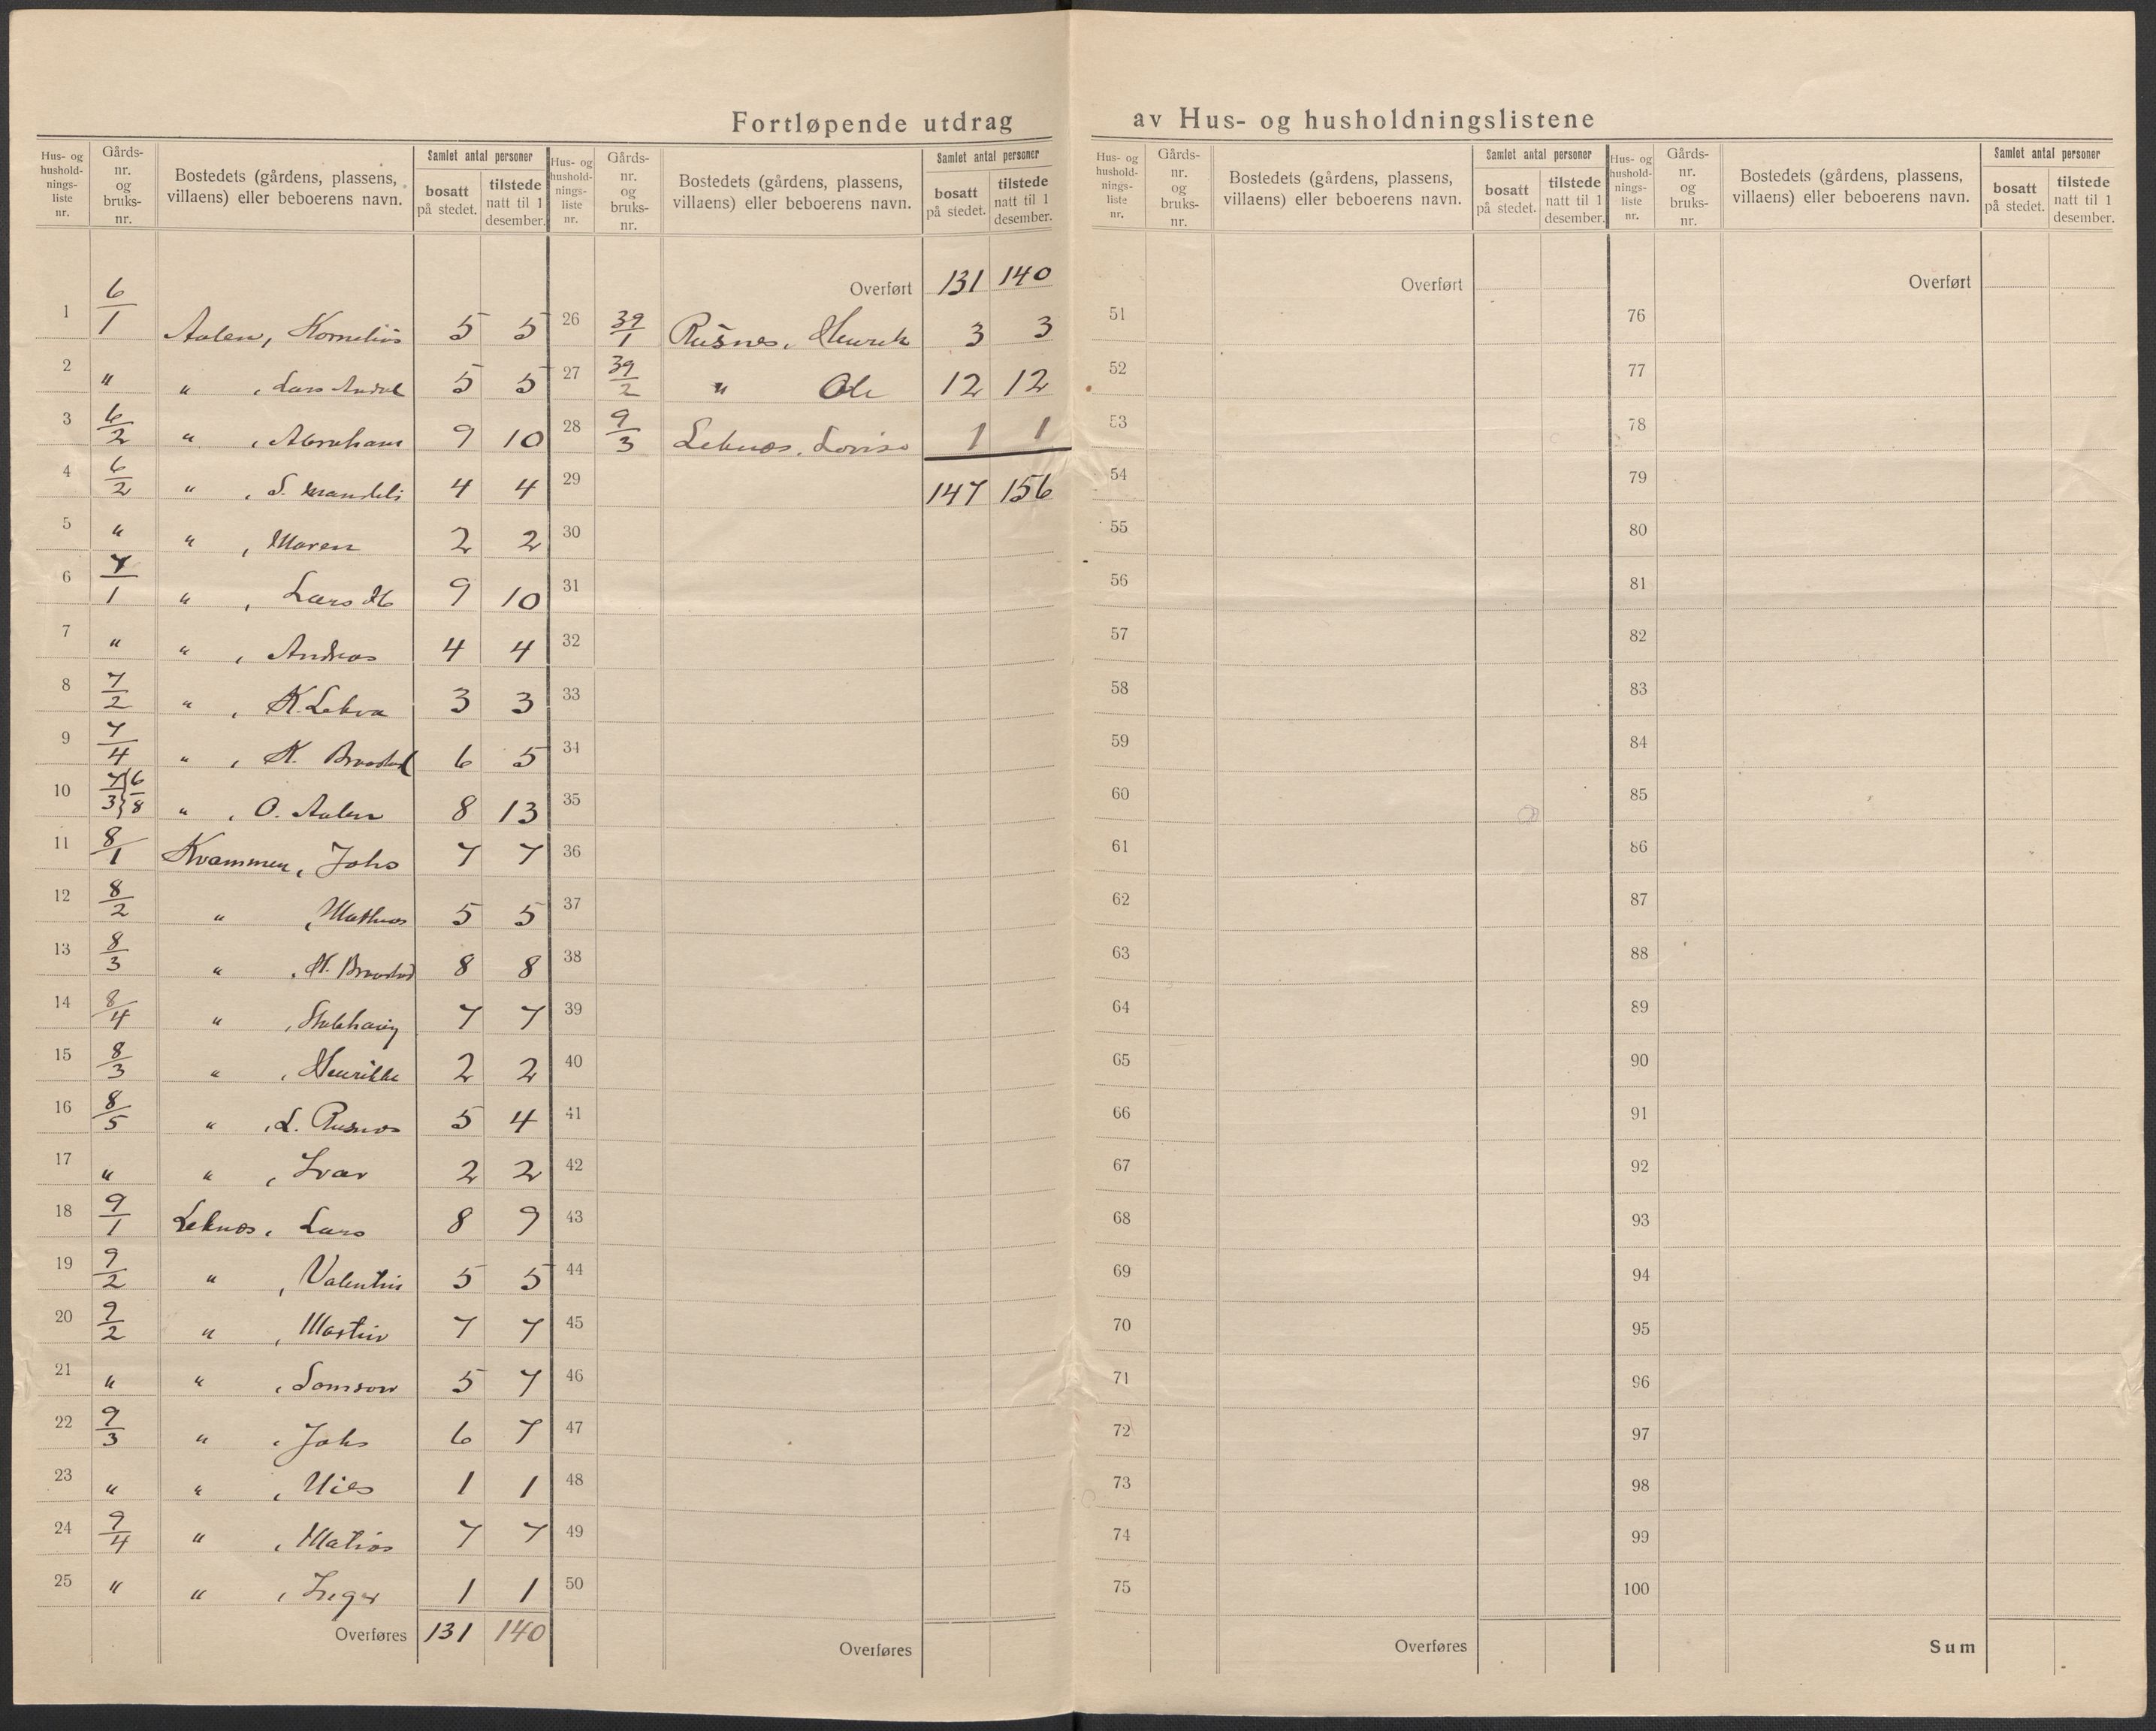 Fortløpende utdrag av Hus- og husholdningslistene
Hus- og hushold-nings-liste nr. Gårds-nr. og bruks-nr. Bostedets (gårdens, plassens, villaens) eller beboerens navn. Samlet antal personer bosatt på stedet. tilstede natt til 1 desember.
1 6/1 Aalen, Kornelius 5 5
2 " " , Lars Andr. 5 5
3 6/2 " , Abraham 9 10
4 6/2 " , S. 4 4
5 " " , Maren 2 2
6 7/1 " , Lars H 9 10
7 " " , Andreas 4 4
8 7/2 " , K. Lekva 3 3
9 7/4 " , K. 6 5
10 7/3 } 6/8 " , O. Aalen 8 13
11 8/1 Kvammen, Johs 7 7
12 8/2 " , Mathias 5 5
13 8/3 " , 8 8
14 8/4 " , 7 7
15 8/3 " , Henrikke 2 2
16 8/5 " , L. Rusnes 5 4
17 " " , Ivar 2 2
18 9/1 Leknes, Lars 8 9
19 9/2 " , Valentin 5 5
20 9/2 " , Martin 7 7
21 " " , Samson 5 7
22 9/3 " , Johs 6 7
23 " " , Nils 1 1
24 9/4 " , Matias 7 7
25 " " , Inger 1 1
Overføres 131 140
Hus- og hushold-nings-liste nr. Gårds-nr. og bruks-nr. Bostedets (gårdens, plassens, villaens) eller beboerens navn. Samlet antal personer bosatt på stedet. tilstede natt til 1 desember.
Overført 131 140
26 39/1 Rusnes, Henrik 3 3
27 39/2 " Ole 12 12
28 9/3 Leknes, Lovise 1 1
29 147 156
30
31
32
33
34
35
36
37
38
39
40
41
42
43
44
45
46
47
48
49
50
Overføres
Hus- og hushold-nings-liste nr. Gårds-nr. og bruks-nr. Bostedets (gårdens, plassens, villaens) eller beboerens navn. Samlet antal personer bosatt på stedet. tilstede natt til 1 desember.
Overført
51
52
53
54
55
56
57
58
59
60
61
62
63
64
65
66
67
68
69
70
71
72
73
74
75
Overføres
Hus- og hushold-nings-liste nr. Gårds-nr. og bruks-nr. Bostedets (gårdens, plassens, villaens) eller beboerens navn. Samlet antal personer bosatt på stedet. tilstede natt til 1 desember.
Overført
76
77
78
79
80
81
82
83
84
85
86
87
88
89
90
91
92
93
94
95
96
97
98
99
100
Sum